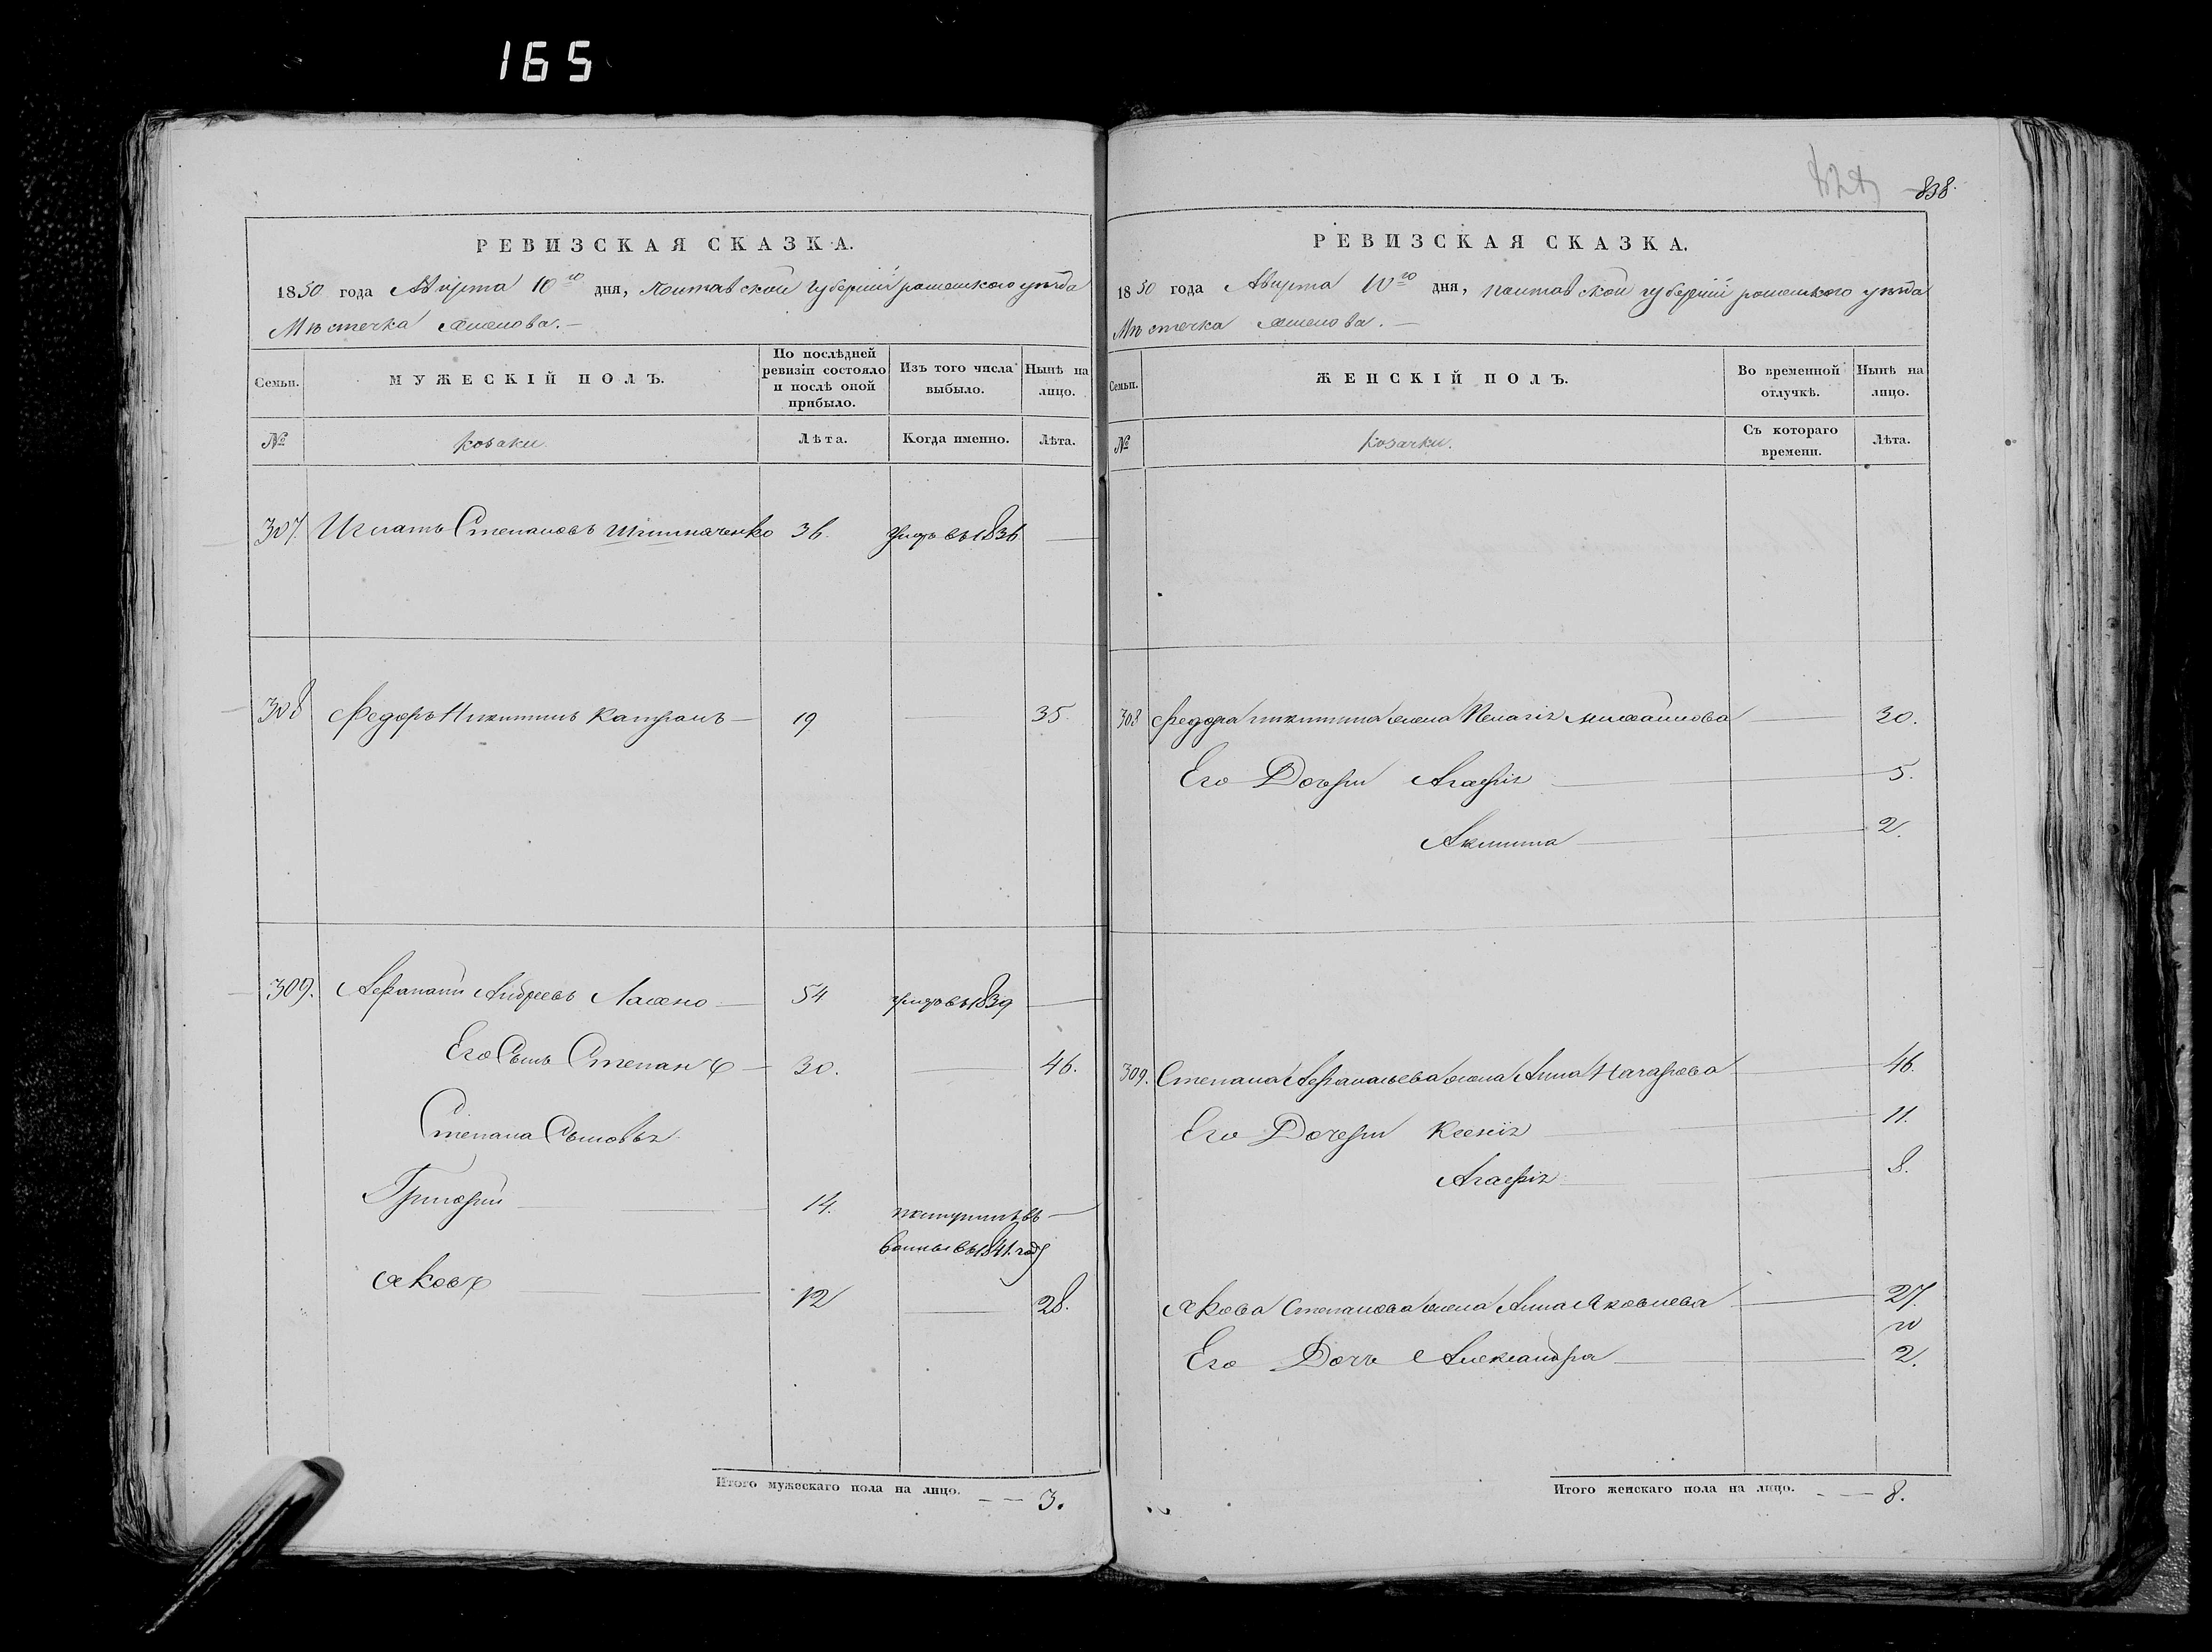 165
838.
РЕВИЗСКАЯ СКАЗКА.
1850 года Августа 10го дня, Полтавской губернии роменского уѣзда
Мѣстечка
Семьи.
МУЖЕСКІЙ ПОЛЪ.
По послѣдней ревизіи состояло и послѣ оной прибыло.
Изъ того числа выбыло.
Нынѣ на лицо.
№
козаки
Лѣта.
Когда именно.
Лѣта.
307. Игнатъ Степановъ 36. умеръ въ 1836
308 Федоръ Никитинъ Капранъ 19 35.
309. Афанасій Андреевъ 54 умеръ въ 1839
Его Сынъ Степанъ 30. 46.
Степана Сыновья
Григорій 14.
въ 1841. году
Яковъ 12 28.
Итого мужескаго пола на лицо. 3.
РЕВИЗСКАЯ СКАЗКА.
1850 года Августа 10го дня, полтавской губерніи роменского уѣзда
Мѣстечка
Семьи.
ЖЕНСКІЙ ПОЛЪ.
Во временной отлучкѣ.
Нынѣ на лицо.
№
козачки.
Съ котораго времени.
Лѣта.
308 Федора никитина жена Пелагія михайлова 30.
Его Дочери Агафія 5.
Акилина 2.
309. Степана Афанасьева жена Анна Назарова 46.
Его Дочери Ксенія 11.
Агафія 8.
Якова Степанова жена Анна Яковлева 27.
Его Дочь Александра 2.
Итого женскаго пола на лицо. 8.